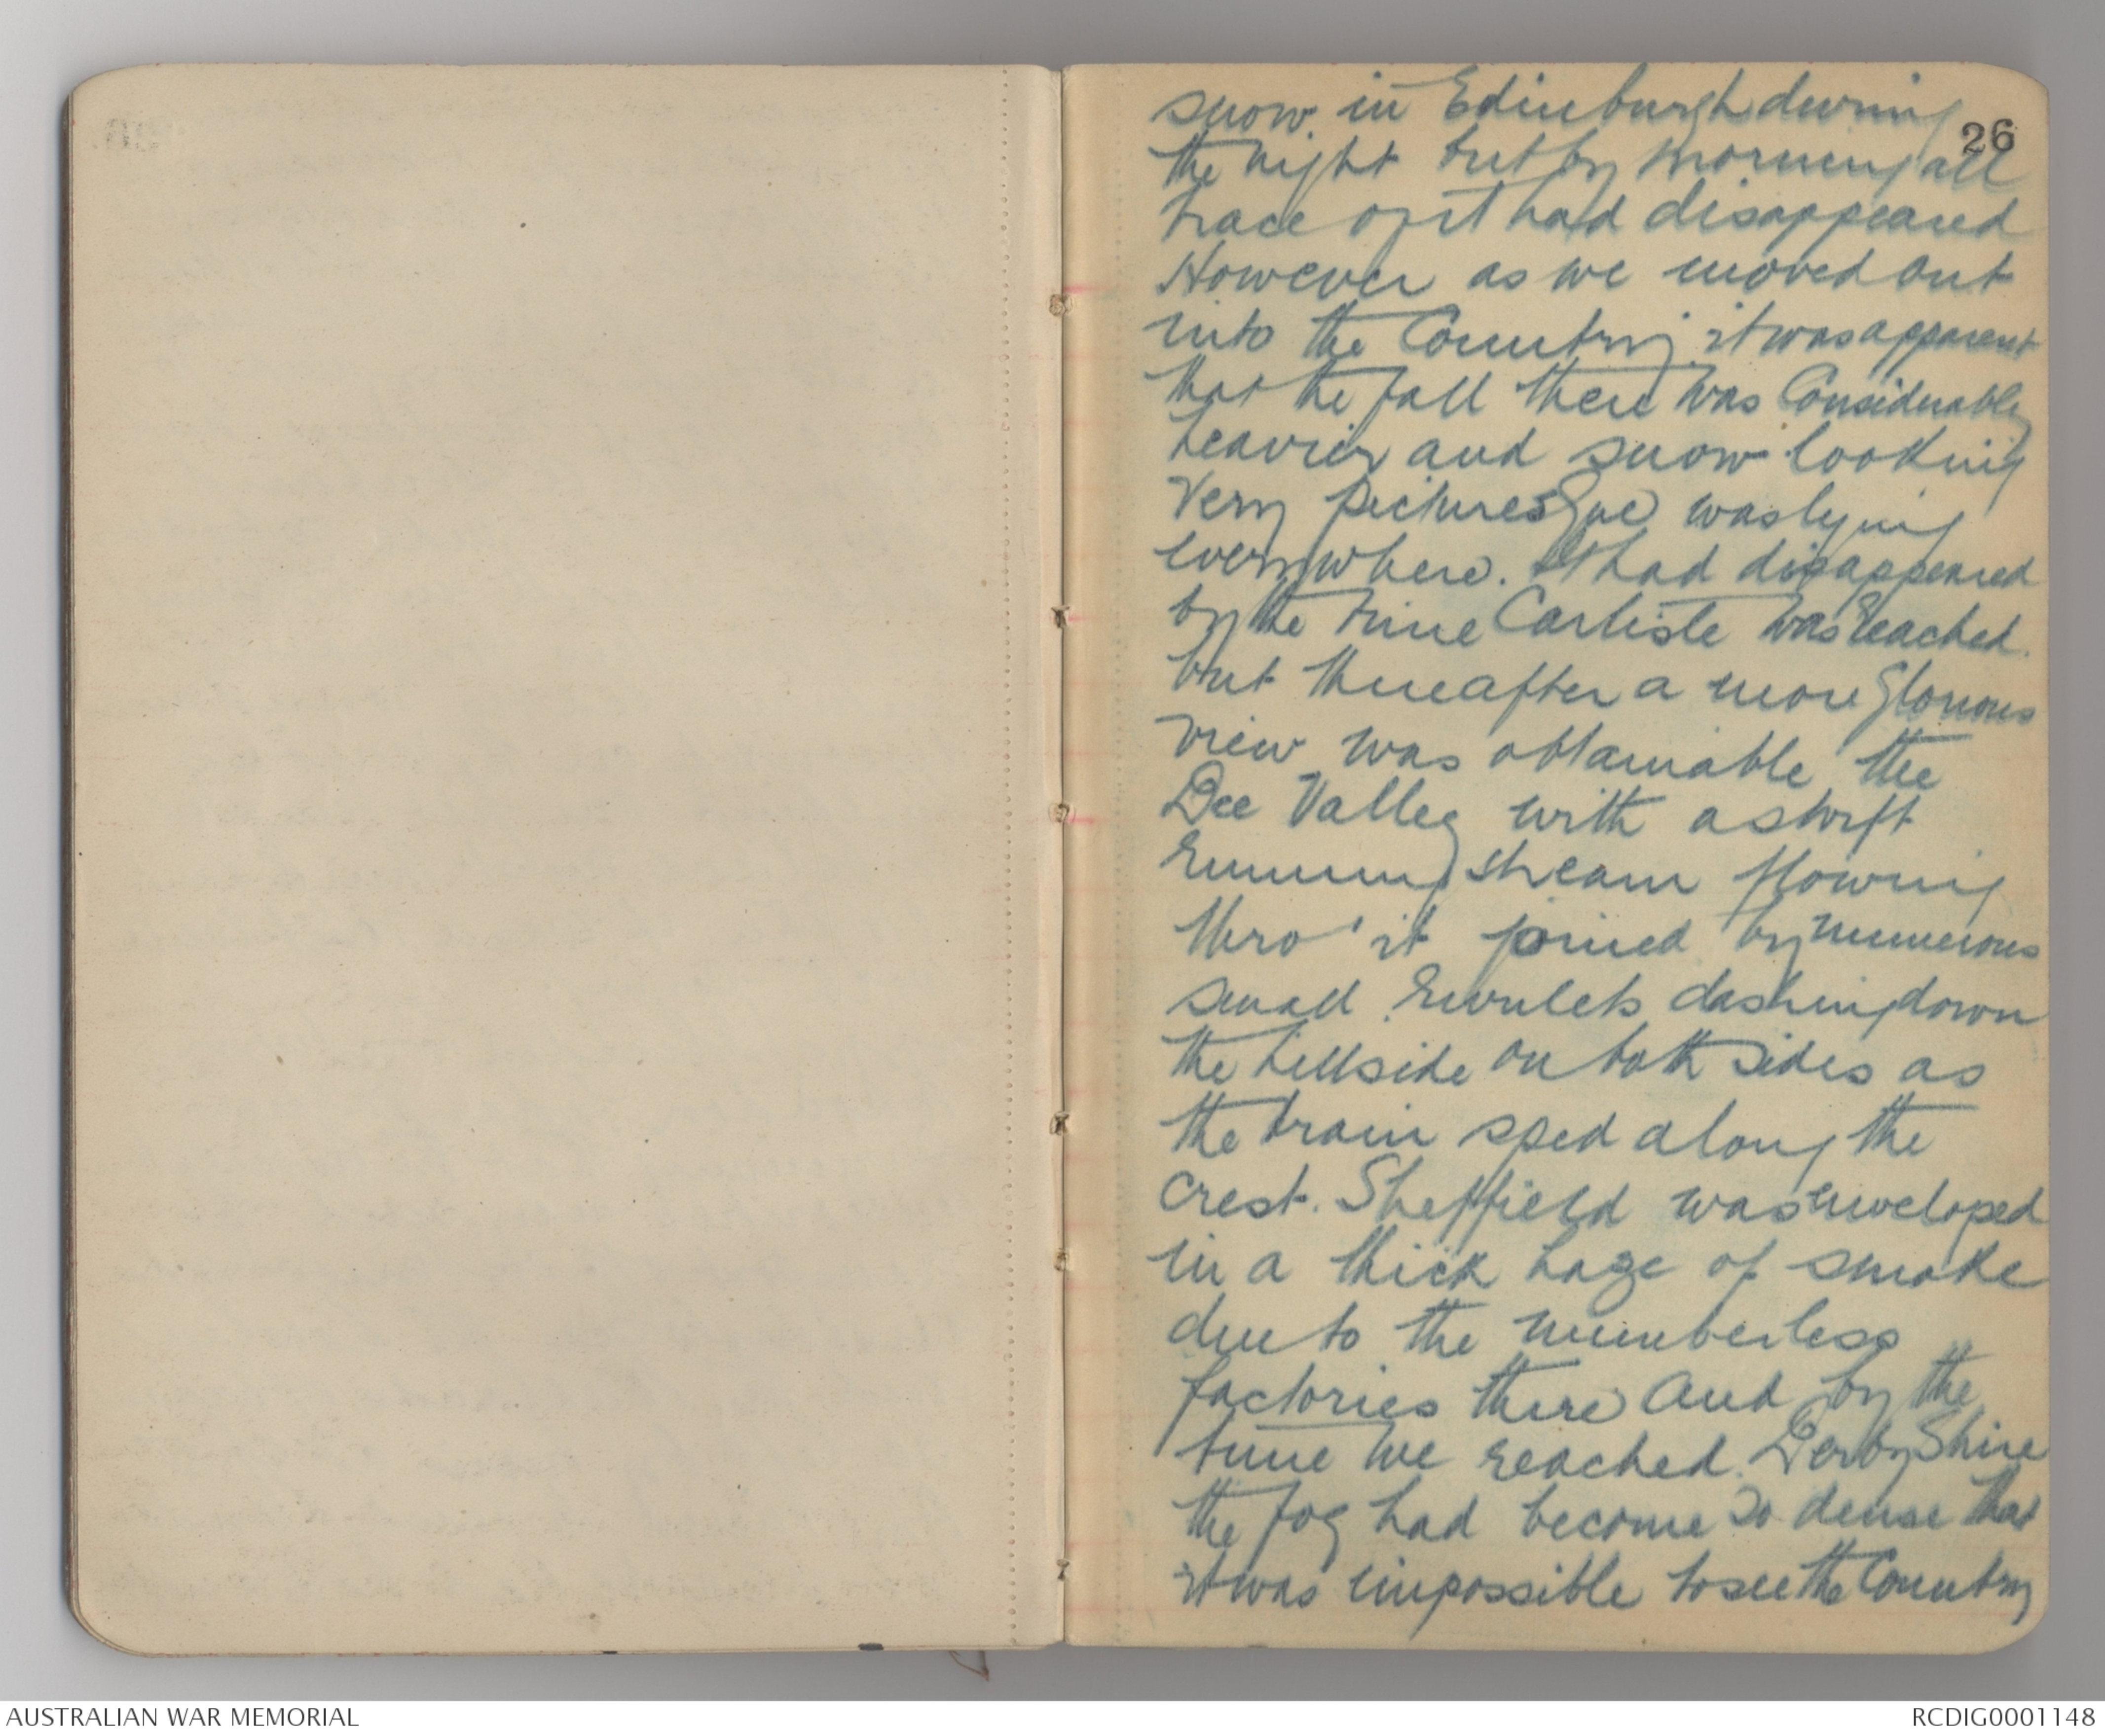 26
snow in Edinburgh during
the night but by morning all
trace of it had disappeared
However as we moved out
into the Country it was apparent
that the fall there was Considerably
heavier and snow looking
very picturesque was lying
everywhere. It had disappeared
by the time Carlisle was reached.
but thereafter a more glorious
view was obtainable the
Dee Valley with a swift
running stream flowing
thro' it joined by numerous
small rivulets dashing down
the hillside on both sides as
the train sped along the
crest. Sheffield was enveloped
in a thick haze of smoke
due to the numberless
factories there and by the
time we reached DerbyShire
the fog had become so dense that
it was impossible to see the Country
AUSTRALIAN WAR MEMORIAL
RCDIG0001148